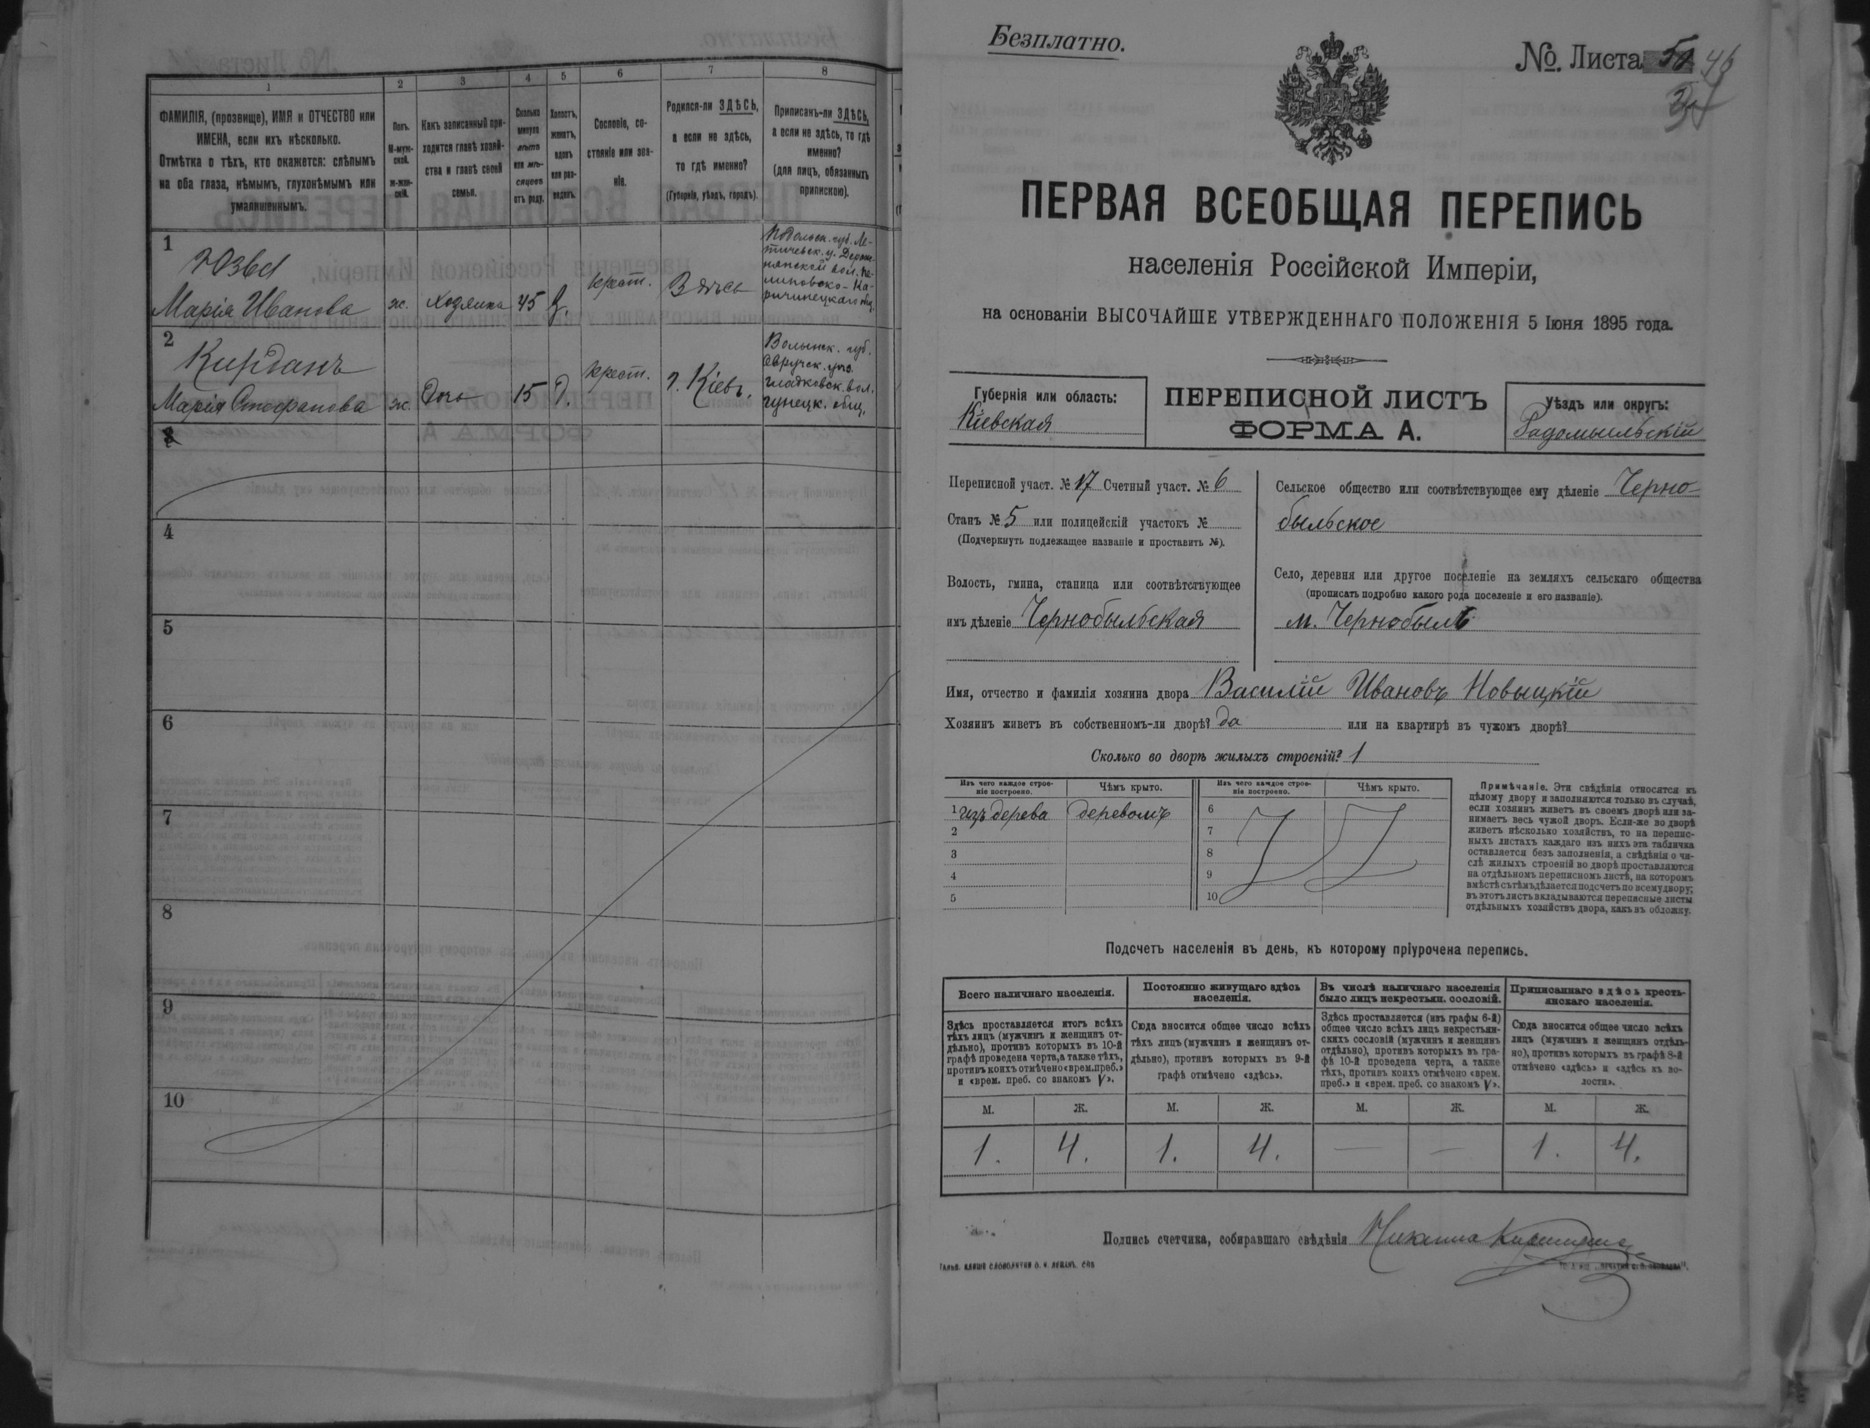 1
2
3
4
5
6
7
8
ФАМИЛІЯ, (прозвище), ИМЯ и ОТЧЕСТВО или
ИМЕНА, если ихъ нѣсколько.
Отмѣтка о тѣхъ, кто окажется: слѣпымъ
на оба глаза, нѣмымъ, глухонѣмымъ или
умалишеннымъ.
Полъ.
М-муж-
ской.
ж-жен-
скій.
Какъ записанный при-
ходится главѣ хозяй-
ства и главѣ своей
семьи.
Сколько
минуло
лѣтъ
или мѣ-
сяцевъ
отъ роду.
Холостъ,
женатъ,
вдовъ
или раз-
веденъ.
Сословіе, со-
стояніе или зва-
ніе.
Родился-ли ЗДѢСЬ,
а если не здѣсь,
то гдѣ именно?
(Губернія, уѣздъ, городъ).
Приписанъ-ли ЗДѢСЬ,
а если не здѣсь, то гдѣ
именно?
(для лицъ, обязанныхъ
припискою).
1
Марія Иванова
ж.
Хозяйка
45
В.
крест.
Здѣсь
Подольск. губ. Ле-
тичевск. у.
2
Кирданъ
Марія Стефанова
ж.
Дочь
15
Д.
крест.
г. Кіевъ.
Волынск. губ.
Овручск. уѣз.
гладковск. вол.
гунецк. общ.
3
4
5
6
7
8
9
10
Безплатно.
№. Листа 50 46
ПЕРВАЯ ВСЕОБЩАЯ ПЕРЕПИСЬ
населенія Россійской Имперіи,
на основаніи ВЫСОЧАЙШЕ УТВЕРЖДЕННАГО ПОЛОЖЕНІЯ 5 Іюня 1895 года.
Губернія или область:
Кіевская
ПЕРЕПИСНОЙ ЛИСТЪ
ФОРМА А.
Уѣздъ или округъ:
Радомыльскій
Переписной участ. № 17 Счетный участ. № 6
Станъ № 5 или полицейскій участокъ №
(Подчеркнуть подлежащее названіе и проставить №).
Волость, гмина, станица или соотвѣтствующее
имъ дѣленіе Чернобыльская
Сельское общество или соотвѣтствующее ему дѣленіе Черно-
быльское
Село, деревня или другое поселеніе на земляхъ сельскаго общества
(прописать подробно какого рода поселеніе и его названіе).
м. Чернобыль
Имя, отчество и фамилія хозяина двора Василій Ивановъ Новыцкій
Хозяинъ живетъ въ собственномъ-ли дворѣ? да или на квартирѣ въ чужомъ дворѣ?
Сколько во дворѣ жилыхъ строеній? 1
Изъ чего каждое строе-
ніе построено.
Чѣмъ крыто.
Изъ чего каждое строе-
ніе построено.
Чѣмъ крыто.
1 изъ дерева деревомъ
2
3
4
5
6
7
8
9
10
Примѣчаніе. Эти свѣдѣнія относятся къ
цѣлому двору и заполняются только въ случаѣ,
если хозяинъ живетъ въ своемъ дворѣ или за-
нимаетъ весь чужой дворъ. Если-же во дворѣ
живетъ нѣсколько хозяйствъ, то на перепис-
ныхъ листахъ каждаго изъ нихъ эта табличка
оставляется безъ заполненія, а свѣдѣнія о чи-
слѣ жилыхъ строеній во дворѣ проставляются
на отдѣльномъ переписномъ листѣ, на которомъ
вмѣстѣ съ тѣмъ дѣлается подсчетъ по всему двору;
въ этотъ листъ вкладываются переписные листы
отдѣльныхъ хозяйствъ двора, какъ въ обложку.
Подсчетъ населенія въ день, къ которому пріурочена перепись.
Всего наличнаго населенія.
Постоянно живущаго здѣсь
населенія.
Въ числѣ наличнаго населенія
было лицъ некрестьян. сословій.
Приписаннаго здѣсь кресть-
янскаго населенія.
Здѣсь проставляется итогъ всѣхъ
тѣхъ лицъ (мужчинъ и женщинъ от-
дѣльно), противъ которыхъ въ 10-й
графѣ проведена черта, а также тѣхъ,
противъ коихъ отмѣчено «врем. преб.»
и «врем. преб. со знакомъ V».
Сюда вносится общее число всѣхъ
тѣхъ лицъ (мужчинъ и женщинъ от-
дѣльно), противъ которыхъ въ 9-й
графѣ отмѣчено «здѣсь».
Здѣсь проставляется (изъ графы 6-й)
общее число всѣхъ лицъ некрестьян-
скихъ сословій (мужчинъ и женщинъ
отдѣльно), противъ которыхъ въ гра-
фѣ 10-й проведена черта, а также
тѣхъ, противъ коихъ отмѣчено «врем.
преб.» и «врем. преб. со знакомъ V».
Сюда вносится общее число всѣхъ
лицъ (мужчинъ и женщинъ отдѣль-
но), противъ которыхъ въ графѣ 8-й
отмѣчено «здѣсь» и «здѣсь къ во-
лости».
М. Ж. М. Ж. М. Ж. М. Ж.
1. 4. 1. 4. — — 1. 4.
Подпись счетчика, собиравшаго свѣдѣнія